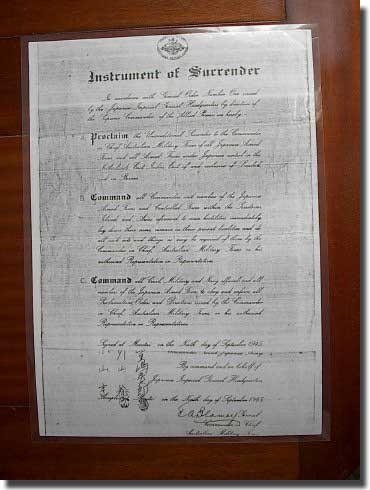 Instrument of Surrender
In accordance with General Order Number One issued
by the Japanese Imperial General Headquarters by direction of
the Supreme Commander of the Allied Powers we hereby:
A. Proclaim the Unconditional Surrender to the Commander
in Chief, Australian Military Forces of all Japanese Armed
Forces and all Armed Forces under Japanese control in the
Netherlands East Indies East of and exclusive of Lombok
and in Borneo.
B. Command all Commanders and members of the Japanese
Armed Forces and Controlled Forces within the
Islands and Areas referred to cease hostilities immediately
lay down their arms, remain in their present localities and do
all such acts and things as may be required of them by the
Commander in Chief, Australian Military Forces or his
authorised Representative or Representatives.
C. Command all Civil, Military and Navy officials and all
members of the Japanese Armed Forces to obey and enforce all
Proclamations, Orders and Directions issued by the Commander
in Chief, Australian Military Forces or his authorised
Representative or Representatives.
Signed at Morotai on the Ninth day of September 1945.
By command and on behalf of
Japanese Imperial General Headquarters
on the Ninth day of September 1945
General
Commander in Chief
Australian Military